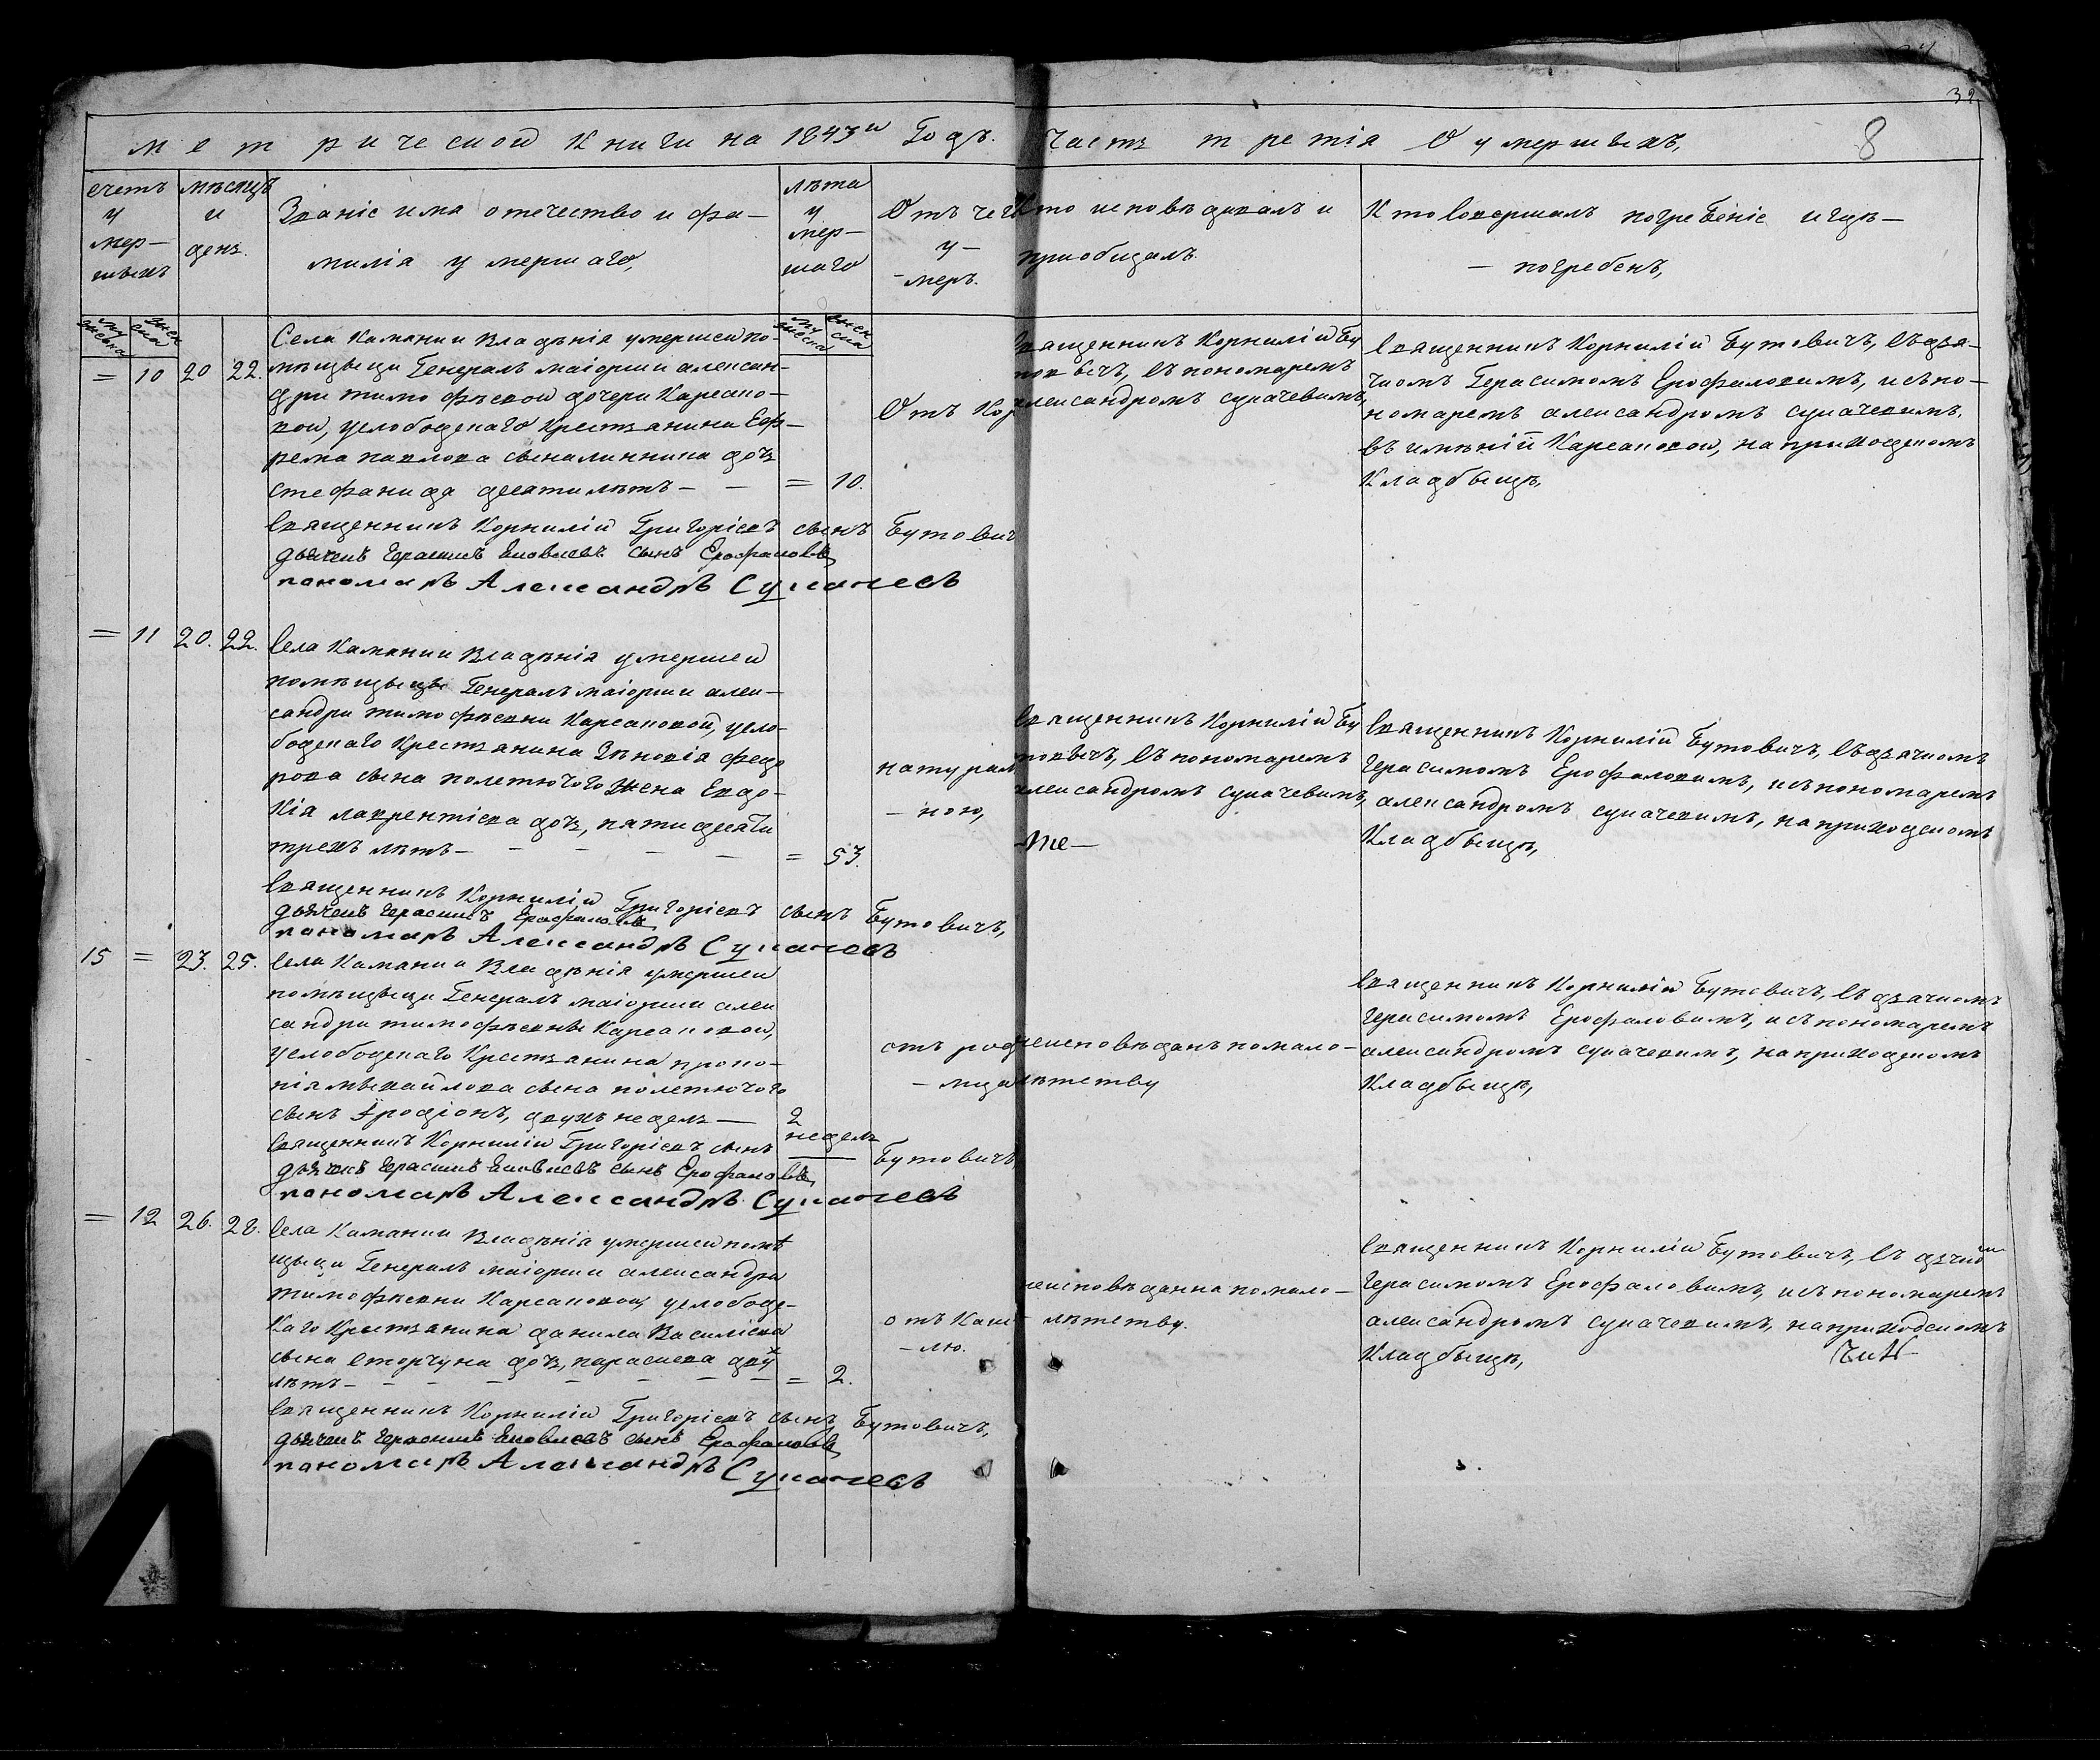 39
метрической книги на 1843й Годъ. часть третія О умершихъ,
8
счетъ умер-шыхъ
мѣсяцъ и день.
Званіе имя отечество и фа-
милія умершаго,
лѣта умер-шаго
Отъ чего у-меръ.
Кто исповѣдивалъ и
приобщалъ.
Кто Совершалъ погребеніе и гдѣ
погребенъ,
мужска
женска
мужска
женска
= 10 20 22.
Села Камянки Владѣнія умершей по-
мѣщыци Генералъ маіорши алексан-
дри тимофѣевой дочери Карсако-
вой, услободскаго Крестьянина Еф-
рема павлова сына дочь
стефанида десяти лѣтъ — — = 10.
Отъ Кор
Священникъ Корнилій Бу
товичъ, съ пономаремъ
александромъ сукачевимъ,
Священникъ Корнилій Бутовичъ, съ дья-
чкомъ Герасимомъ Ерофаловимъ, и съ по-
номаремъ александромъ сукачевимъ,
въ имѣніи Карсаковой, на приходскомъ
Кладбыщѣ,
Священникъ Корнилій Григоріевъ сынъ Бутович
дьячекъ Герасимъ Яковлевъ сынъ Ерофаловъ
паномаръ Александръ Сукачевъ
= 11 20. 22.
Села Камянки Владѣнія умершей
помѣщыцы Генералъ маіорши алек-
сандри тимофѣевни Карсаковой, усло-
бодскаго Крестьянина Зѣновія федо
рова сына полетючого Жена Евдо-
кія лаврентіева дочь, пятидесяти
трехъ лѣтъ — — — — — = 53.
натурал
-ною,
Священникъ Корнилій Бу
товичъ, съ пономаремъ
александромъ сукачевимъ,
Священникъ Корнилій Бутовичъ, съ дьячкомъ
Герасимомъ Ерофаловимъ, и съ пономаремъ
александромъ сукачевимъ, на приходскомъ
Кладбыщѣ,
Священникъ Корнилій Григоріевъ сынъ Бутовичъ,
дьячекъ Герасимъ Ерофаловъ
паномаръ Александръ Сукачевъ
15 = 23. 25.
Села Камянки Владѣнія умершей
помѣщыци Генералъ маіорши алек
сандри тимофѣевны Карсаковой,
услободскаго Крестьянина проко-
пія мыхайлова сына полетючого
сынъ Иродіонъ, двухъ недель —
2
недель
отъ род
-мца
неисповѣданъ помало-
лѣтству
Священникъ Корнилій Бутовичъ, съ дьячкомъ
Герасимомъ Ерофаловимъ, и съ пономаремъ
александромъ сукачевимъ, на приходскомъ
Кладбыщѣ,
Священникъ Корнилій Григоріевъ сынъ Бутовичъ
дьячекъ Герасимъ Яковлевъ сынъ Ерофаловъ
паномаръ Александръ Сукачевъ
= 12 26. 28.
Села Камянки Владѣнія умершей помѣ
щыци Генералъ маіорши александри
тимофѣевни Карсаковой услободс-
каго Крестьянина данила Василіева
сына сторчуна дочь, параскева двух
лѣтъ — — — — — — = 2.
отъ Каш-
-лю.
неисповѣданна помало-
лѣтству.
Священникъ Корнилій Бутовичъ, съ дьячком
Герасимомъ Ерофаловимъ, и съ пономаремъ
александромъ сукачевимъ, на приходскомъ
Кладбыщѣ,
Священникъ Корнилій Григоріевъ сынъ Бутовичъ,
дьячекъ Герасимъ Яковлевъ сынъ Ерофаловъ
паномаръ Александръ Сукачевъ